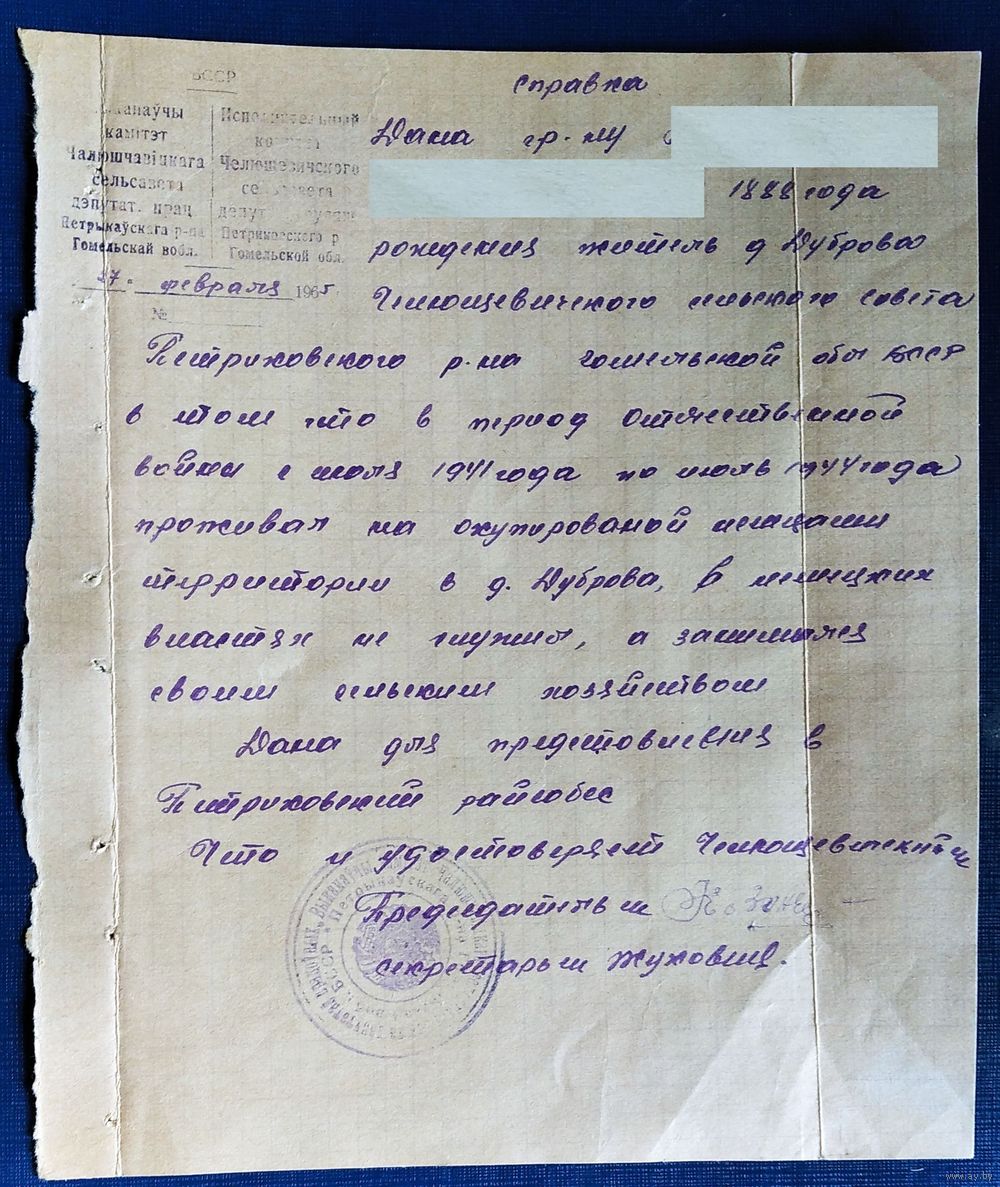 БССР
камітэт
Чалюшчавіцкага
сельсавета
дэпутат. прац
Петрыкаўскага р-на
Гомельскай вобл.
Исполнительный
комитет
Челюшевичского
сельсовета
Петриковского р
Гомельской обл.
27. февраля 1965
№
Справка
Дана гр-ну
1888 года
рождения житель д Дуброва
Челющевичского сельского совета
Петриковского р-на Гомельской обл БССР
в том что в период Отечественной
войны с июля 1941 года по июль 1944 года
проживал на окупированой немцами
территории в д. Дуброва, в немецких
властях не служил, а занимался
своим сельским хозяйством
Дана для предстовления в
Петриковский райсобес
Что и удостоверяет Челющевический с/с
Председатель с/с
секретарь с/с Жуковец.
www.ay.by